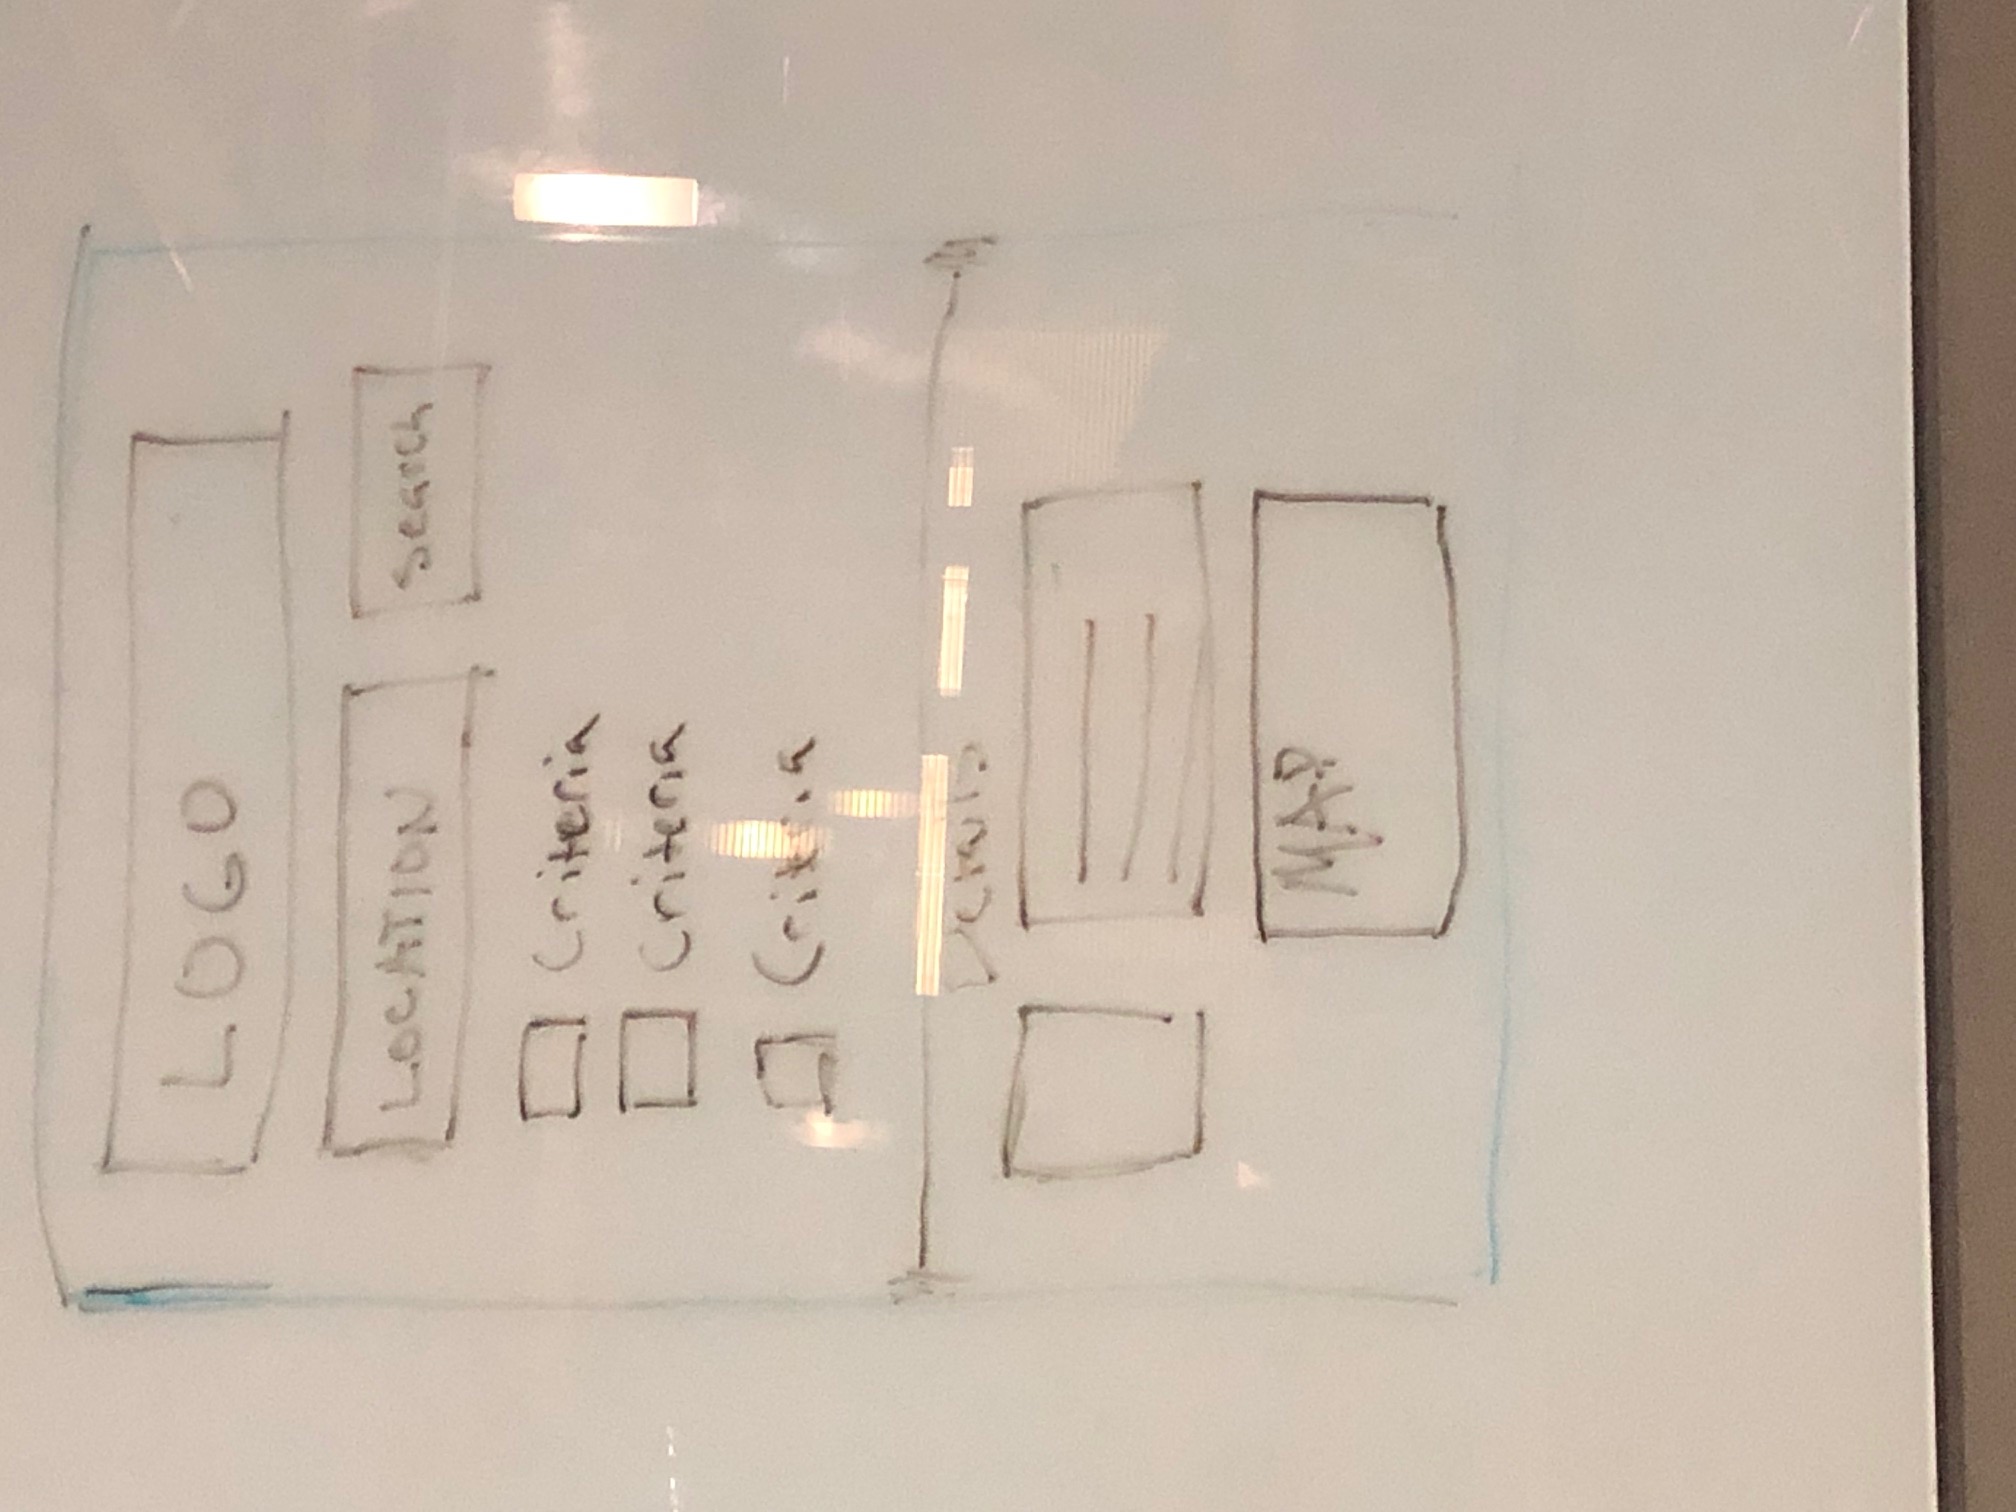 LOGO
LOCATION Search
Criteria
Criteria
Criteria
Details
MAP